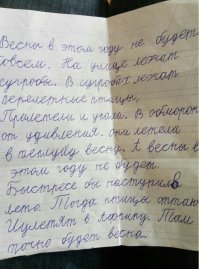 Весны в этом году не будет
совсем. На улице лежат
сугробы. В сугробах лежат
перелетные птицы.
Прилетели и упали. В обморок
от удивления. они летели
в теплую весну. А весны в
этом году не будет.
Быстрее бы наступило
лето. Тогда птицы оттают
И улетят в Африку. Там
точно будет весна.